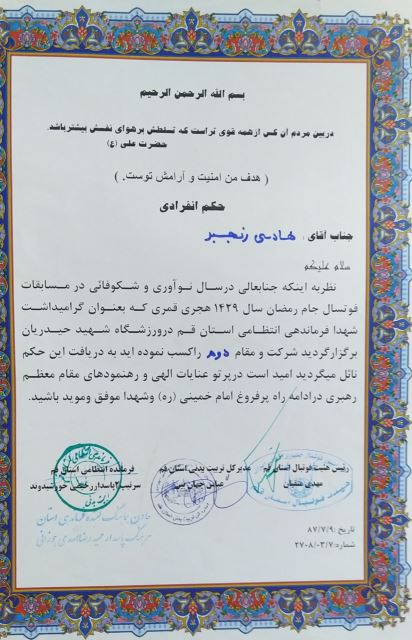 بسم الله الرحمن الرحیم
دربین مردم آن کس ازهمه قوی تراست که تسلطش برهوای نفسش بیشترباشد.
حضرت علی (ع)
( هدف من امنیت و آرامش توست. )
حکم انفرادی
جناب آقای : هادی رنجبر
سلام علیکم
نظربه اینکه جنابعالی درسال نوآوری و شکوفائی در مسابقات
فوتسال جام رمضان سال ۱۴۲۹ هجری قمری که بعنوان گرامیداشت
شهدا فرماندهی انتظامی استان قم درورزشگاه شهید حیدریان
برگزارگردید شرکت و مقام دوم راکسب نموده اید به دریافت این حکم
نائل میگردید امید است درپرتو عنایات الهی و رهنمودهای مقام معظم
رهبری درادامه راه پرفروغ امام خمینی (ره) وشهدا موفق وموید باشید.
رئیس هئیت فوتبال استان قم
مدیرکل تربیت بدنی استان قم
فرمانده انتظامی استان قم
مهدی
عباس
سرتیپ ۲پاسدار
تاریخ :۸۷/۷/۹
شماره:۲۷۰۸/۰۳/۷